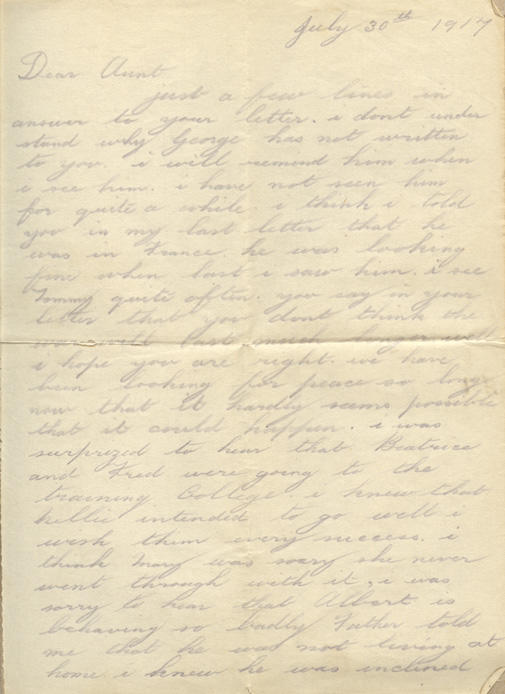 July 30th 1917
Dear Aunt
just a few lines in
answer to your letter. i dont under
stand why George has not written
to you. i will remend him when
i see him. i have not seen him
for quite a while. i think i told
you in my last letter that he
was in France. he was looking
fine when last i saw him. i see
Tommy quite often. you say in your
letter that you dont think the
war will last much longer well
i hope you are right. we have
been looking for peace so long
now that it hardly seems possible
that it could happen. i was
surprized to hear that Beatrice
and Fred were going to the
training College. i knew that
Nellie intended to go well i
wish them every success. i
think Mary was sorry she never
went through with it, i was
sorry to hear that Albert is
behaving so badly Father told
me that he was not living at
home. i knew he was inclined